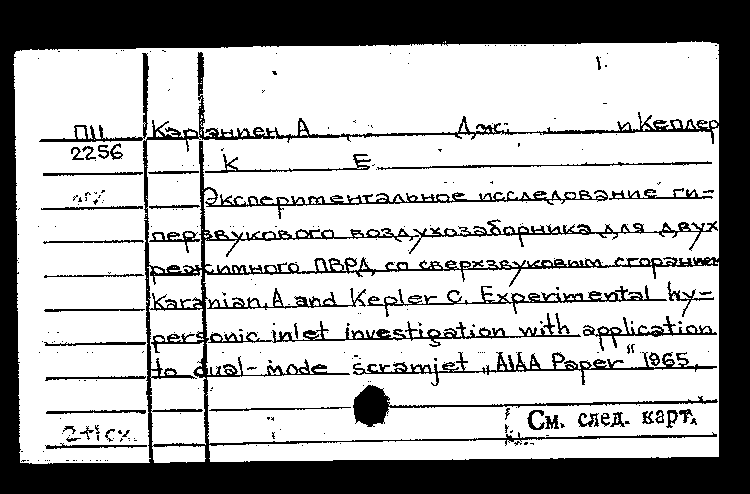 1.
ПII Карэниен, А. Дж. и Кеплер
2256 К Е
Экспериментальное исследование ги-
перзвукового воздухозаборника для двух
режимного ПВРД со сверхзвуковым сгоранием
Karanian, A. and Kepler C. Experimental hy-
personic inlet investigation with application
to dual-mode scramjet „AIAA Paper" 1965,
2+1 сх.
См. след. карт.